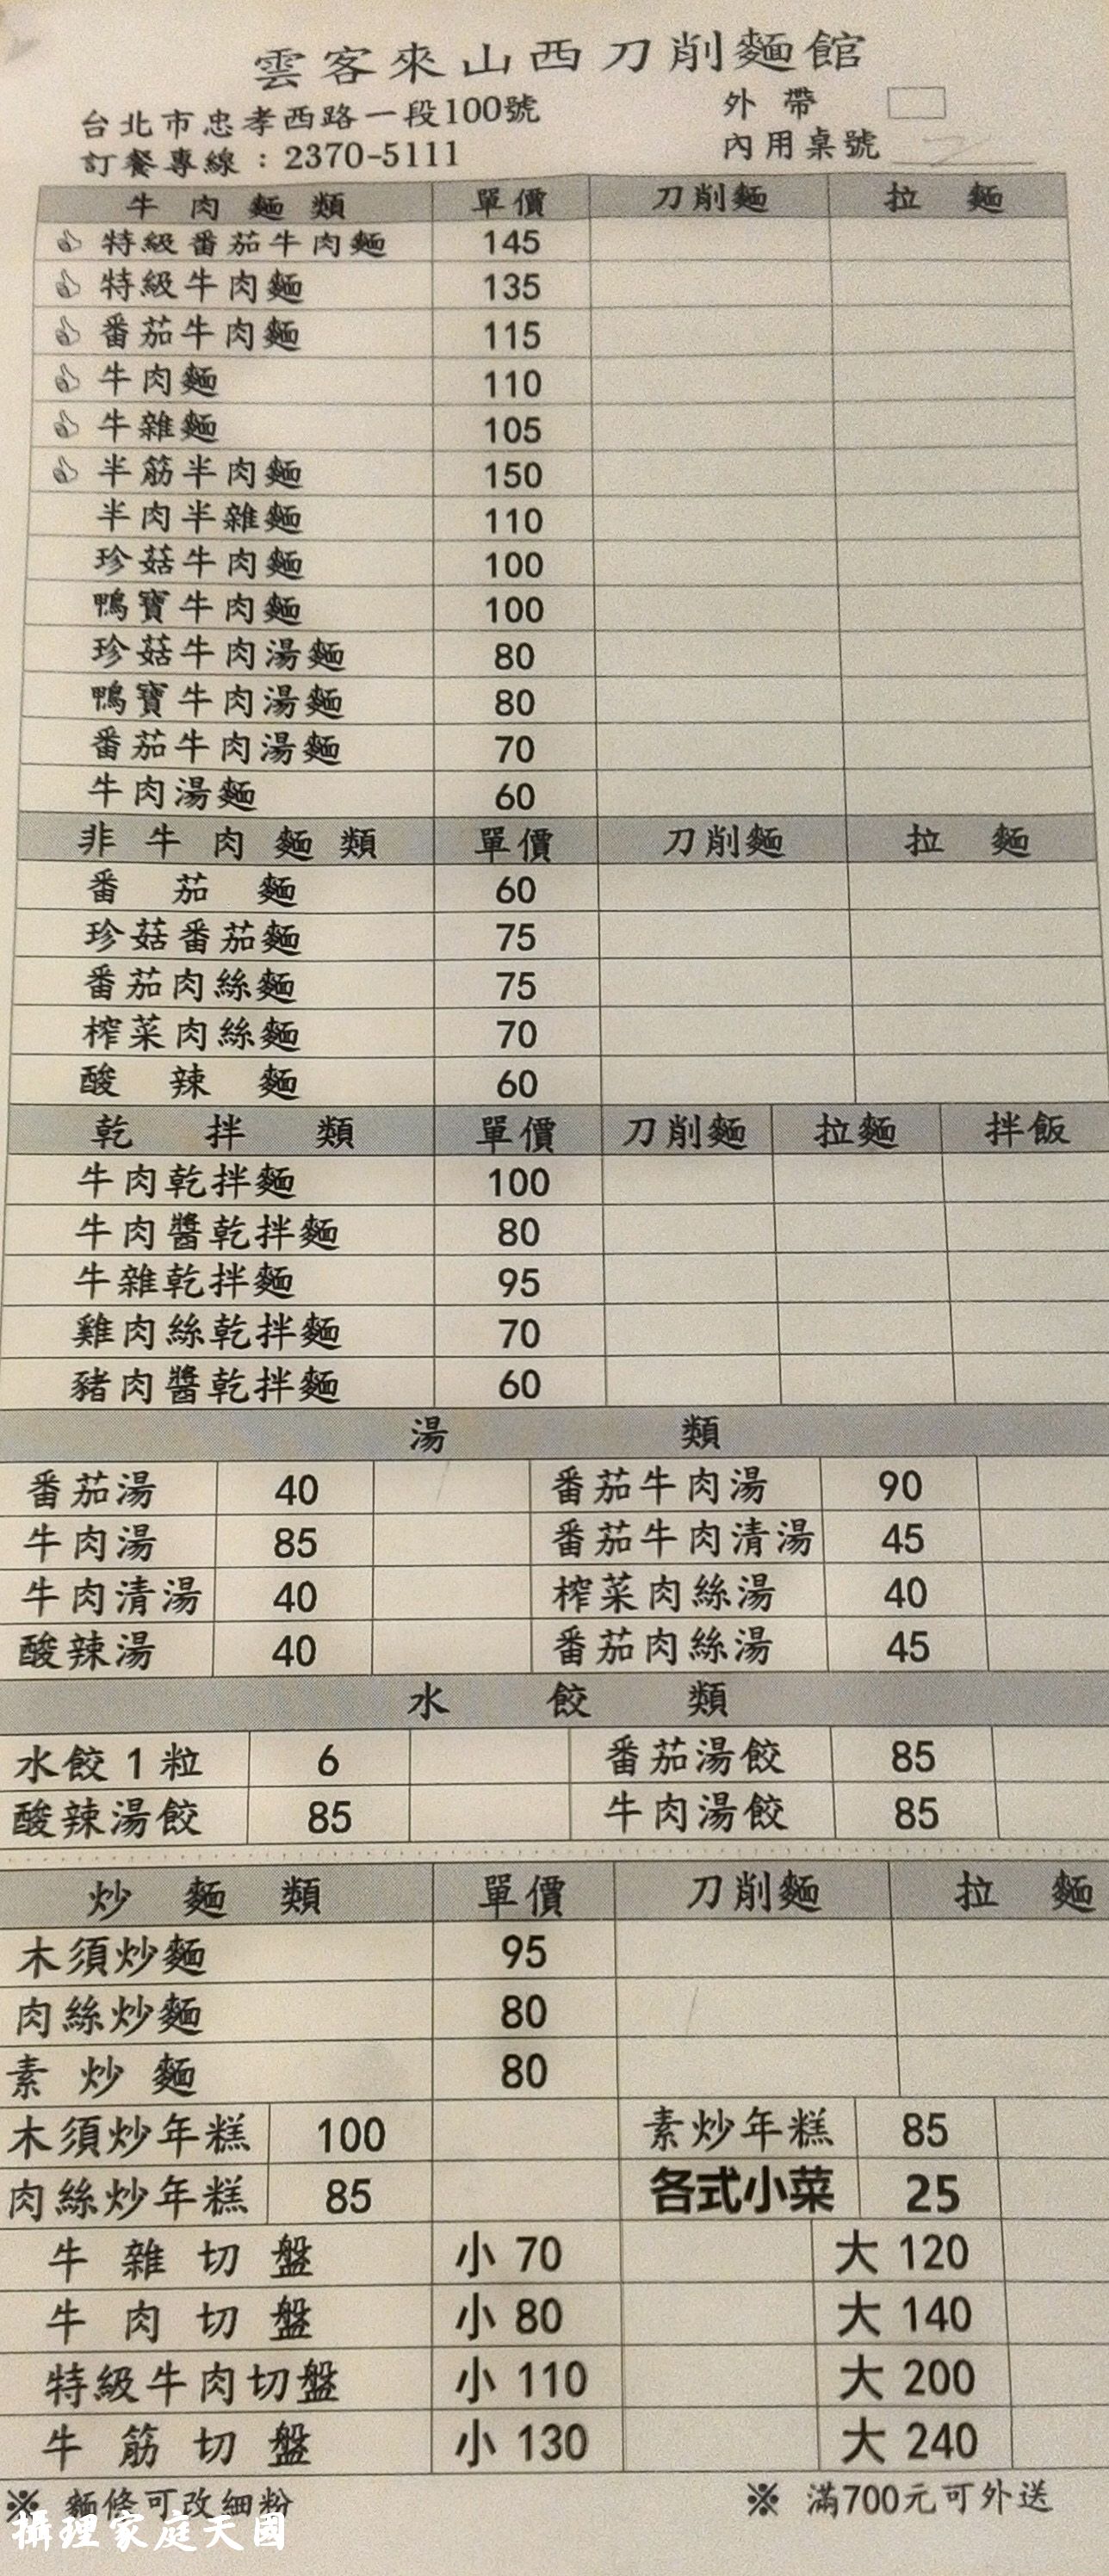 雲客來山西刀削麵館
台北市忠孝西路一段100號 外帶
訂餐專線：2370-5111 內用桌號
牛肉麵類 單價 刀削麵 拉麵
特級番茄牛肉麵 145
特級牛肉麵 135
番茄牛肉麵 115
牛肉麵 110
牛雜麵 105
半筋半肉麵 150
半肉半雜麵 110
珍菇牛肉麵 100
鴨寶牛肉麵 100
珍菇牛肉湯麵 80
鴨寶牛肉湯麵 80
番茄牛肉湯麵 70
牛肉湯麵 60
非牛肉麵類 單價 刀削麵 拉麵
番茄麵 60
珍菇番茄麵 75
番茄肉絲麵 75
榨菜肉絲麵 70
酸辣麵 60
乾拌類 單價 刀削麵 拉麵 拌飯
牛肉乾拌麵 100
牛肉醬乾拌麵 80
牛雜乾拌麵 95
雞肉絲乾拌麵 70
豬肉醬乾拌麵 60
湯類
番茄湯 40 番茄牛肉湯 90
牛肉湯 85 番茄牛肉清湯 45
牛肉清湯 40 榨菜肉絲湯 40
酸辣湯 40 番茄肉絲湯 45
水餃類
水餃1粒 6 番茄湯餃 85
酸辣湯餃 85 牛肉湯餃 85
炒麵類 單價 刀削麵 拉麵
木須炒麵 95
肉絲炒麵 80
素炒麵 80
木須炒年糕 100 素炒年糕 85
肉絲炒年糕 85 各式小菜 25
牛雜切盤 小 70 大 120
牛肉切盤 小 80 大 140
特級牛肉切盤 小 110 大 200
牛筋切盤 小 130 大 240
※ 麵條可改細粉 ※ 滿700元可外送
攝理家庭天國